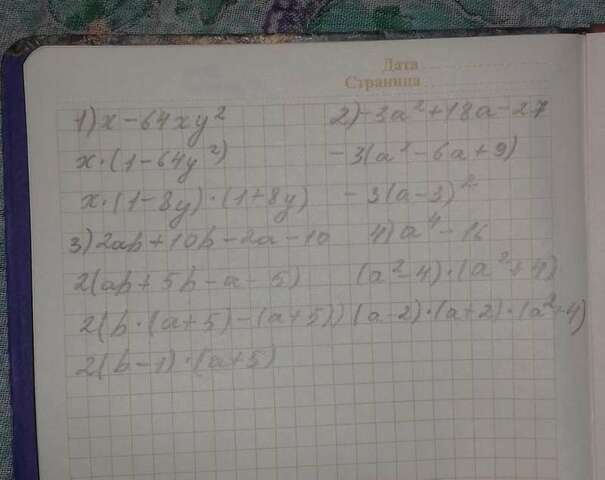 Дата
Страница
1) x - 64xy²
x·(1 - 64y²)
x·(1 - 8y)·(1 + 8y)
2) -3a² + 18a - 27
-3(a² - 6a + 9)
-3(a - 3)²
3) 2ab + 10b - 2a - 10
2(ab + 5b - a - 5)
2(b·(a + 5) - (a + 5))
2(b - 1)·(a + 5)
4) a⁴ - 16
(a² - 4)·(a² + 4)
(a - 2)·(a + 2)·(a² + 4)